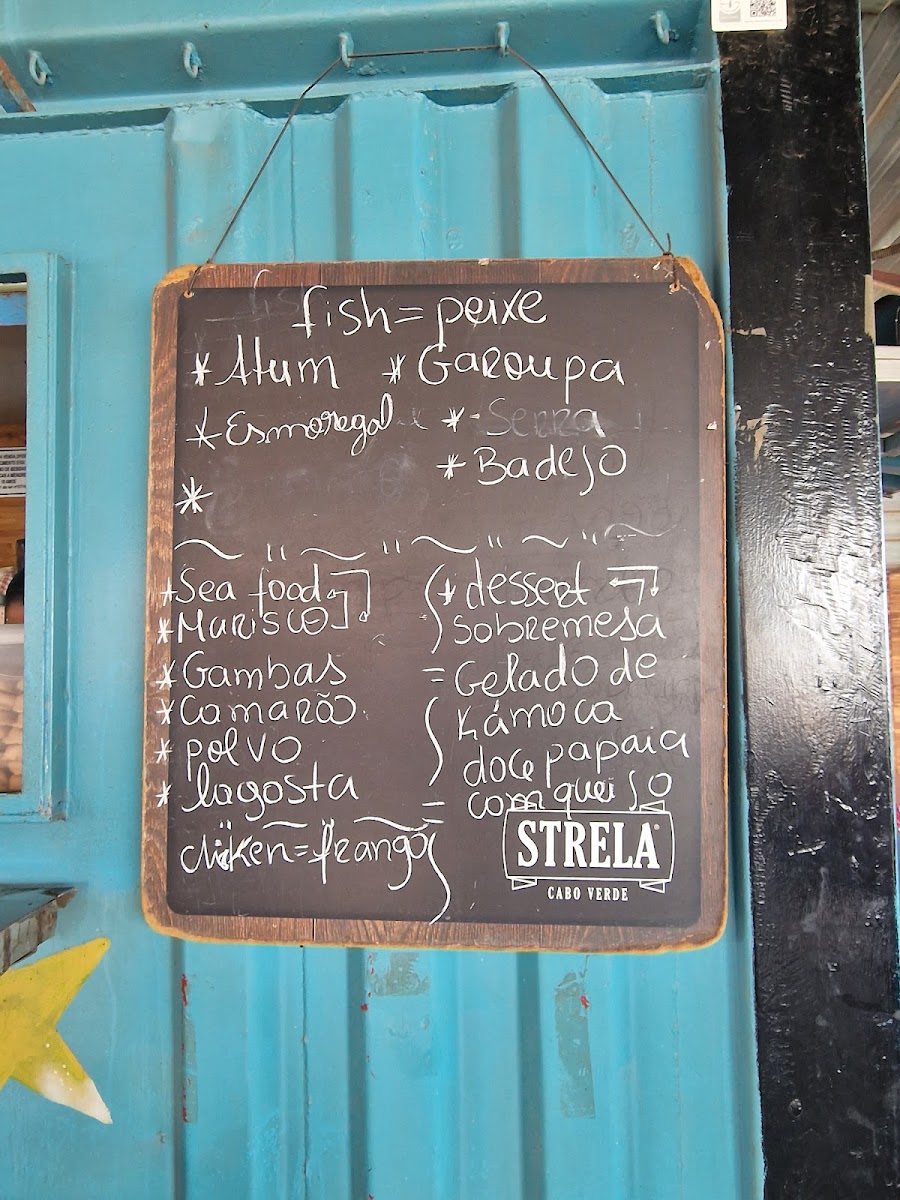 fish = peixe
* Atum * Garoupa
* Esmoregal * Serra
* Badejo
*
* Sea food * dessert
* Marisco Sobremesa
* Gambas = Gelado de
* Camarão Kámoca
* polvo doce papaia
* lagosta = com queijo
chiken = frango
STRELA
CABO VERDE